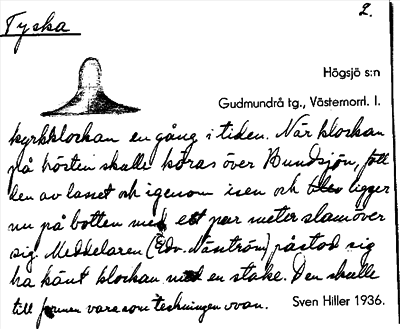 Tyska
2.
Högsjö s:n
Gudmundrå tg., Västernorrl. l.
kyrkklockan en gång i tiden. När klockan
på hösten skulle köras över Hundsjön, föll
den av lasset och igenom isen och blev ligger
nu på botten med ett par meter slam över
sig. Meddelaren (Edv. Näström) påstod sig
ha känt klockan med en stake. Den skulle
till formen vara som teckningen ovan.
Sven Hiller 1936.